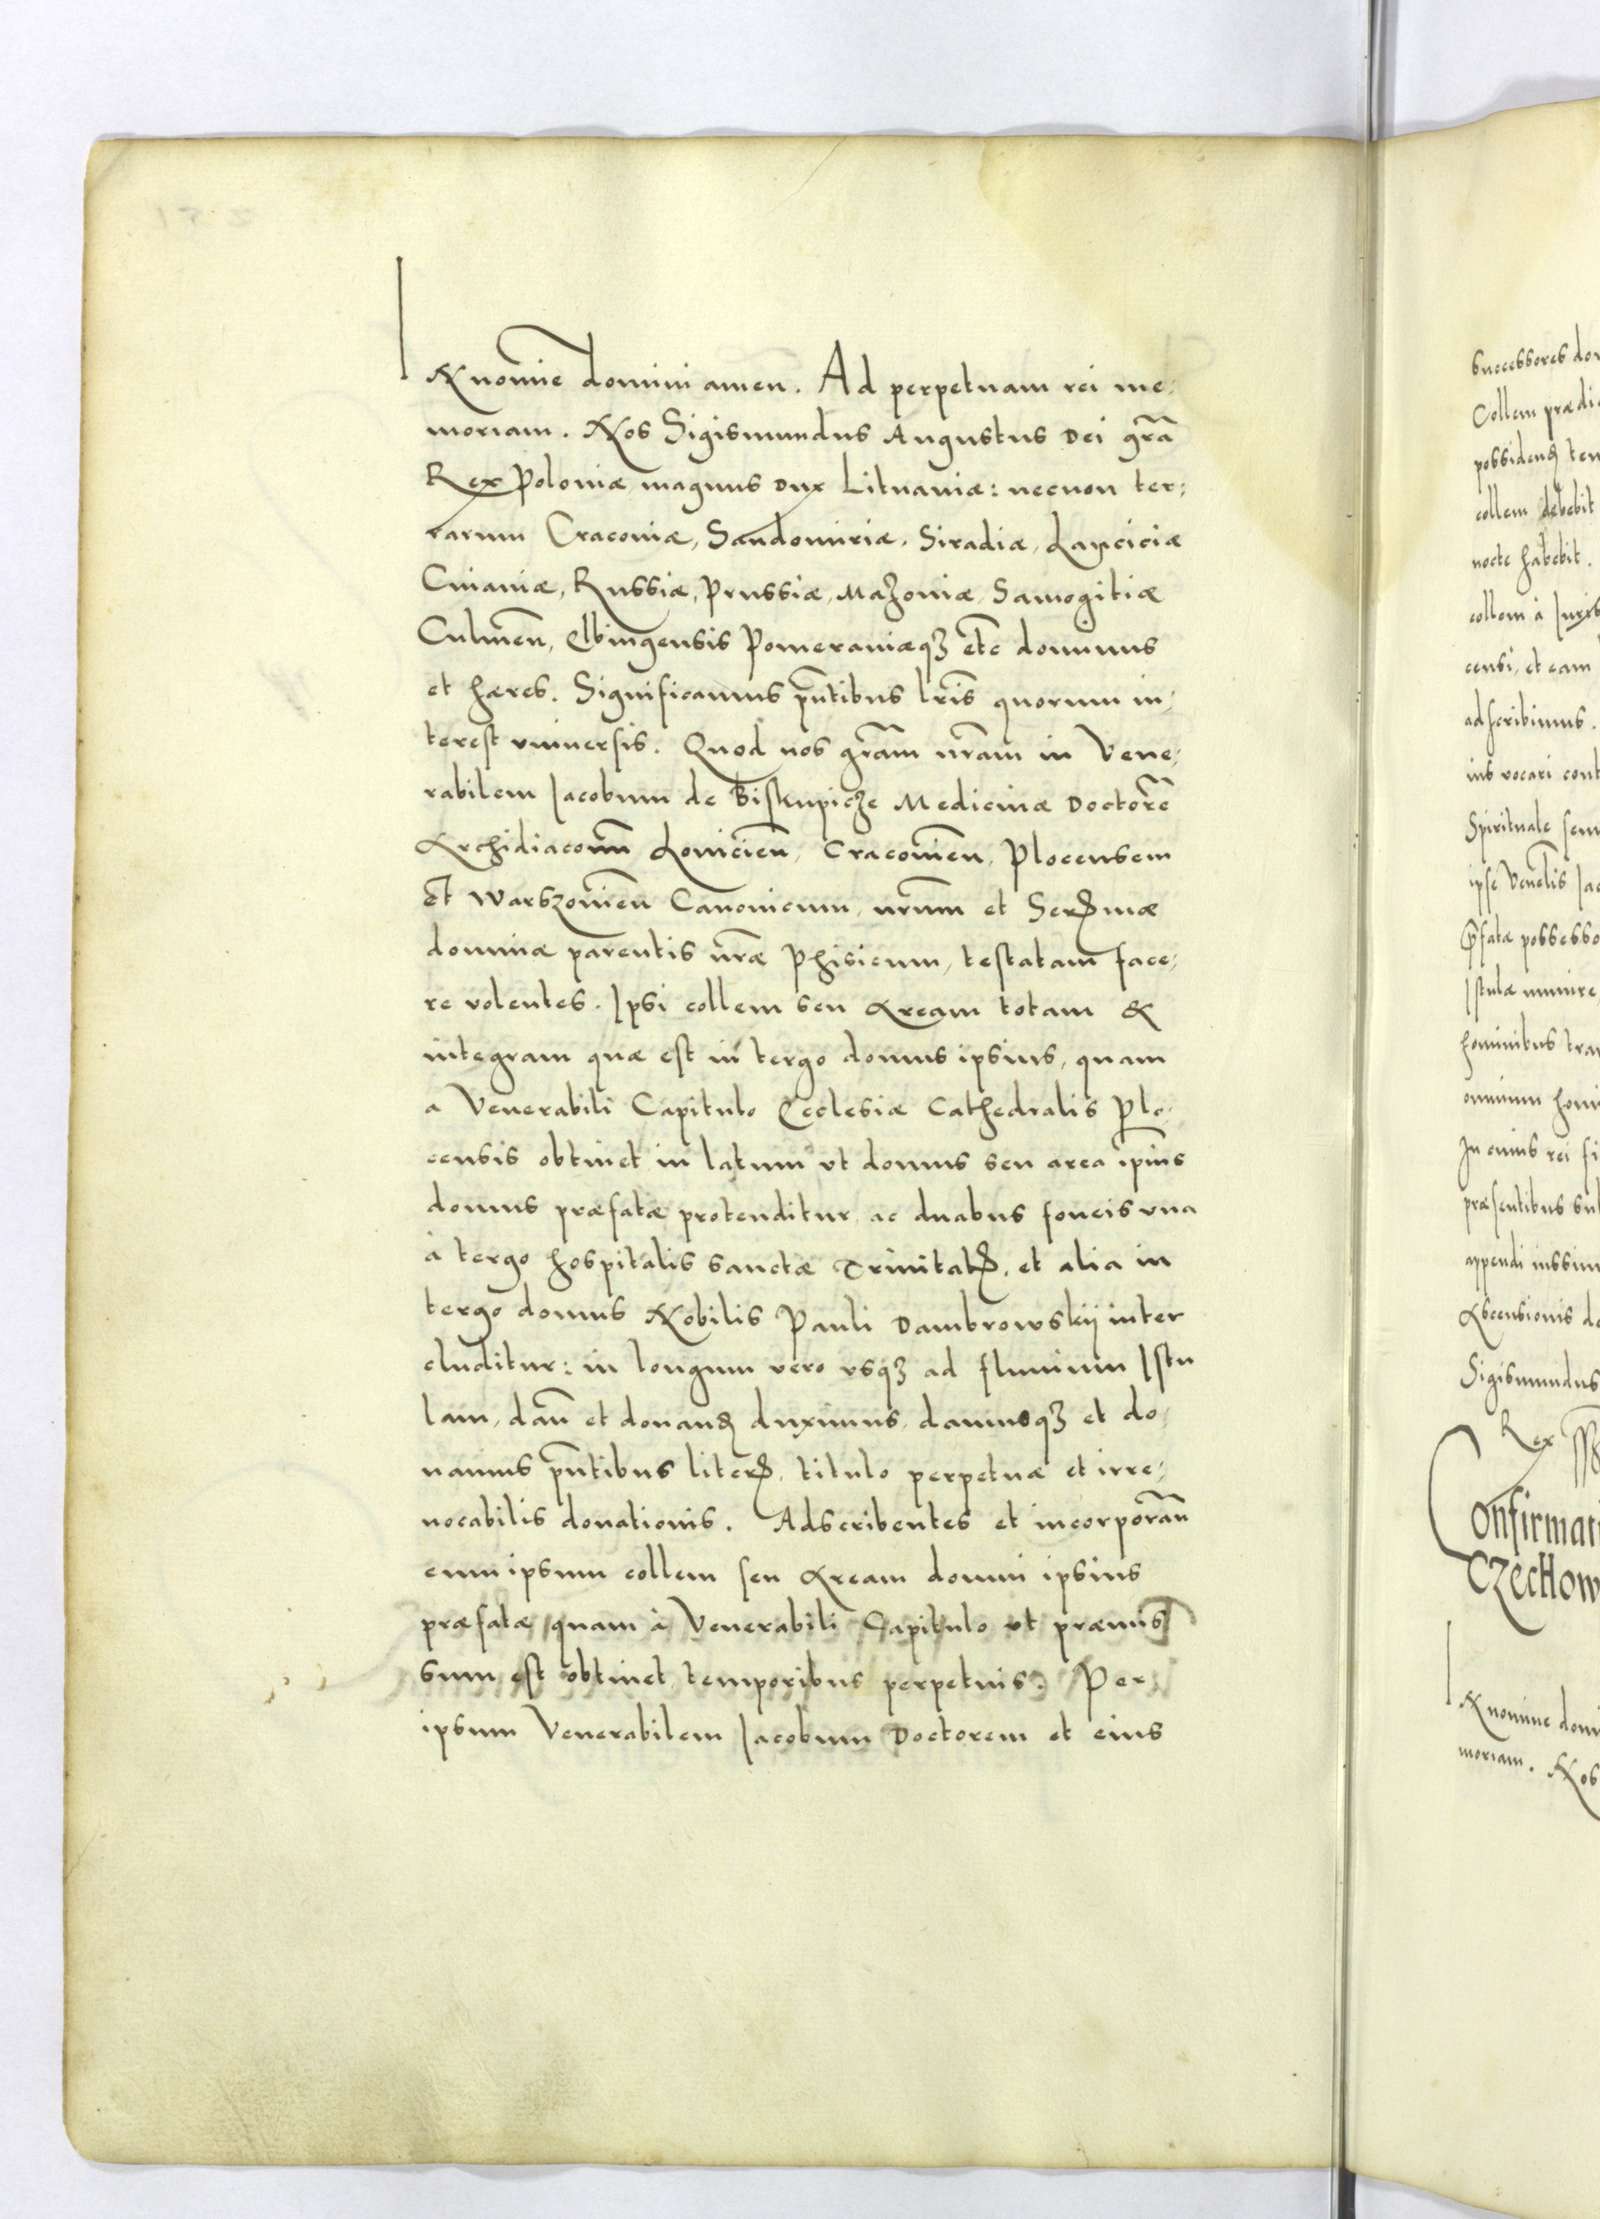 IN nomīe domini amen. Ad perpetuam rei me:
moriam. Nos Sigismundus Augustus Dei gr̄a
Rex Poloniæ magnus Dux Lituaniæ: necnon ter:
rarum Cracoviæ, Sandomiriæ, Siradiæ, Lanciciæ
Cuiaviæ, Russiæ, Prussiæ, Mazoviæ, Samogitiæ
Culmeñ, Elbingensis Pomeraniæqꝫ etc̄ dominus
et hæres. Significamus pñtibus lr̄is quorum in:
terest universis. Quod nos gr̄am nr̄am in Vene:
rabilem Iacobum de Biskupicze Medicinæ Doctorē
Archidiaconū Lovicieñ, Cracovieñ, Plocensem
et Warszovieñ Canonicum, nr̄um et Serꝫmæ
dominæ parentis nr̄æ Phisicum, testatam face:
re volentes. Ipsi collem seu Aream totam &
integram quæ est in tergo domus ipsius, quam
a Venerabili Capitulo Ecclesiæ Cathedralis Plo:
censis obtinet in latum ut domus seu area ip̄ius
domus præfatæ protenditur, ac duabus foveis una
à tergo hospitalis sanctæ Trinitatꝭ, et alia in
tergo domus Nobilis Pauli Dambrowskij inter
cluditur: in longum vero usqꝫ ad fluvium Istu
lam, dañ et donanꝫ duximus, damusqꝫ et do:
namus pñtibus literꝭ, titulo perpetuæ et irre:
vocabilis donationis. Adscribentes et incorporañ
eum ipsum collem seu Aream domui ipsius
præfatæ quam à Venerabili Capitulo ut præmis
sum est obtinet temporibus perpetuis. Per
ipsum Venerabilem Iacobum Doctorem et eius
successores
Collem
possidenꝫ
collem debebit
nocte habebit.
collem à Iuris
censi, et eam
adscribimus.
ius vocari
Spirituale
ipse Venēlis
p̄fatæ
Istulæ munire,
hominibus
omnium
In cuius rei
præsentibus
appendi
Ascensionis
Sigismundus
Rex
Confirmati
Czechow
IN nomine
moriam. Nos